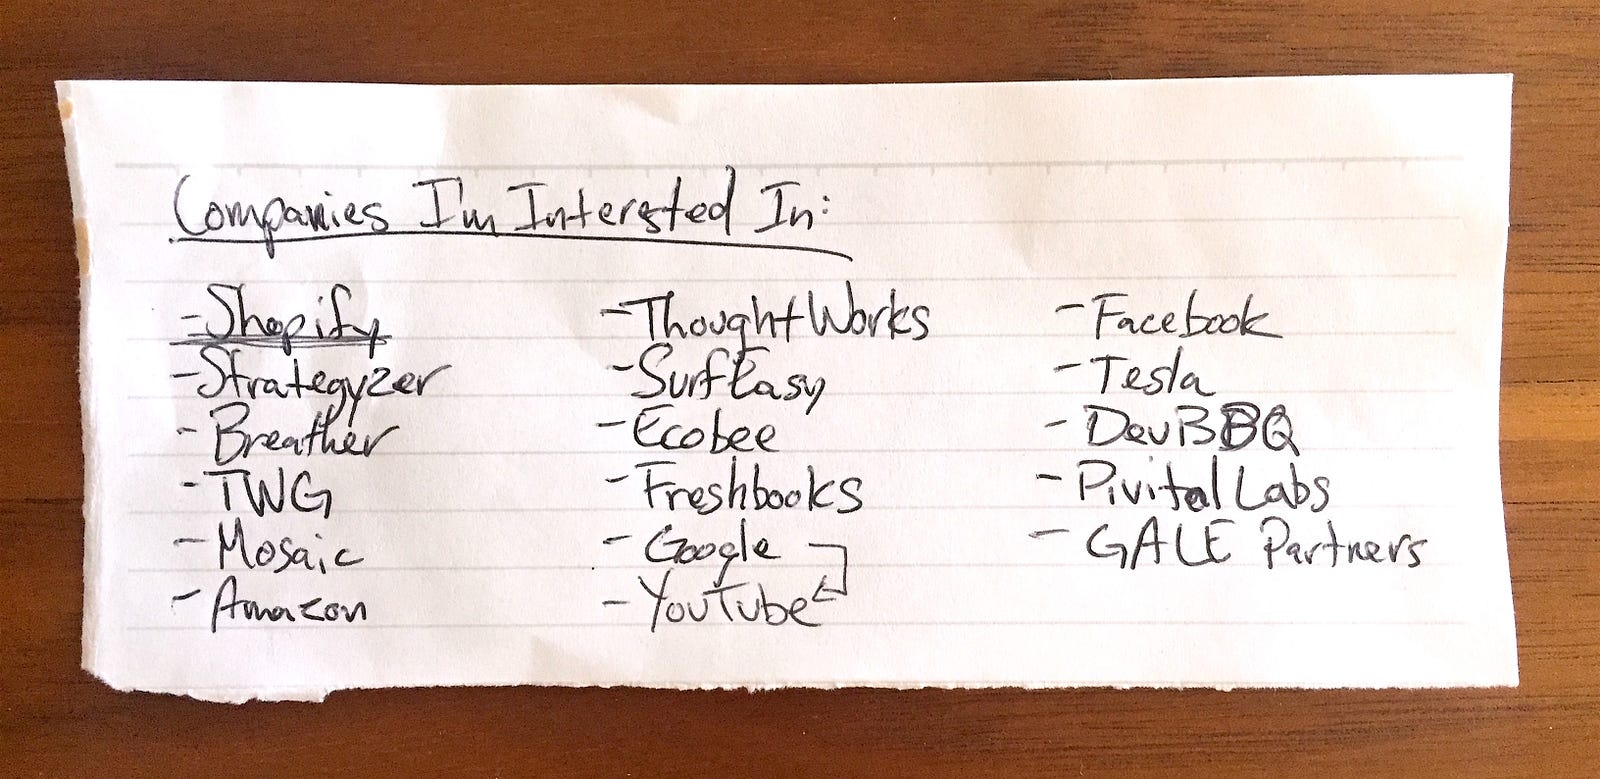 Companies I'm Intersted In:
- Shopify
- Strategyzer
- Breather
- TWG
- Mosaic
- Amazon
- ThoughtWorks
- SurfEasy
- Ecobee
- Freshbooks
- Google
- YouTube
- Facebook
- Tesla
- DevBBQ
- Pivital Labs
- GALE Partners